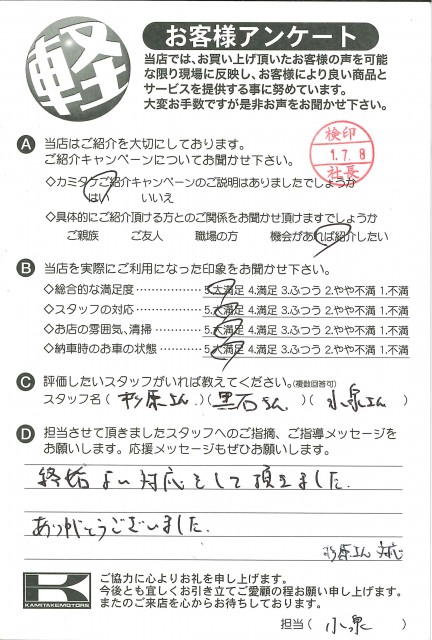 軽
お客様アンケート
当店では、お買い上げ頂いたお客様の声を可能
な限り現場に反映し、お客様により良い商品と
サービスを提供する事に努めています。
大変お手数ですが是非お声をお聞かせ下さい。
A 当店はご紹介を大切にしております。
ご紹介キャンペーンについてお聞かせ下さい。
検印
1.7.8
社長
◇カミタケご紹介キャンペーンのご説明はありましたでしょうか
はい いいえ
◇具体的にご紹介頂ける方とのご関係をお聞かせ頂けますでしょうか
ご親族 ご友人 職場の方 機会があれば紹介したい
B 当店を実際にご利用になった印象をお聞かせ下さい。
◇総合的な満足度 5.大満足 4.満足 3.ふつう 2.やや不満 1.不満
◇スタッフの対応 5.大満足 4.満足 3.ふつう 2.やや不満 1.不満
◇お店の雰囲気、清掃 5.大満足 4.満足 3.ふつう 2.やや不満 1.不満
◇納車時のお車の状態 5.大満足 4.満足 3.ふつう 2.やや不満 1.不満
C 評価したいスタッフがいれば教えてください。(複数回答可)
スタッフ名(杉原さん)(黒石さん)(小泉さん)
D 担当させて頂きましたスタッフへのご指摘、ご指導メッセージを
お願いします。応援メッセージもぜひお願いします。
終始よい対応をして頂きました.
ありがとうございました.
杉原さん対応
K
KAMITAKEMOTORS
ご協力に心よりお礼を申し上げます。
今後とも宜しくお引き立てご愛顧の程お願い申し上げます。
またのご来店を心からお待ちしております。
担当(小泉)